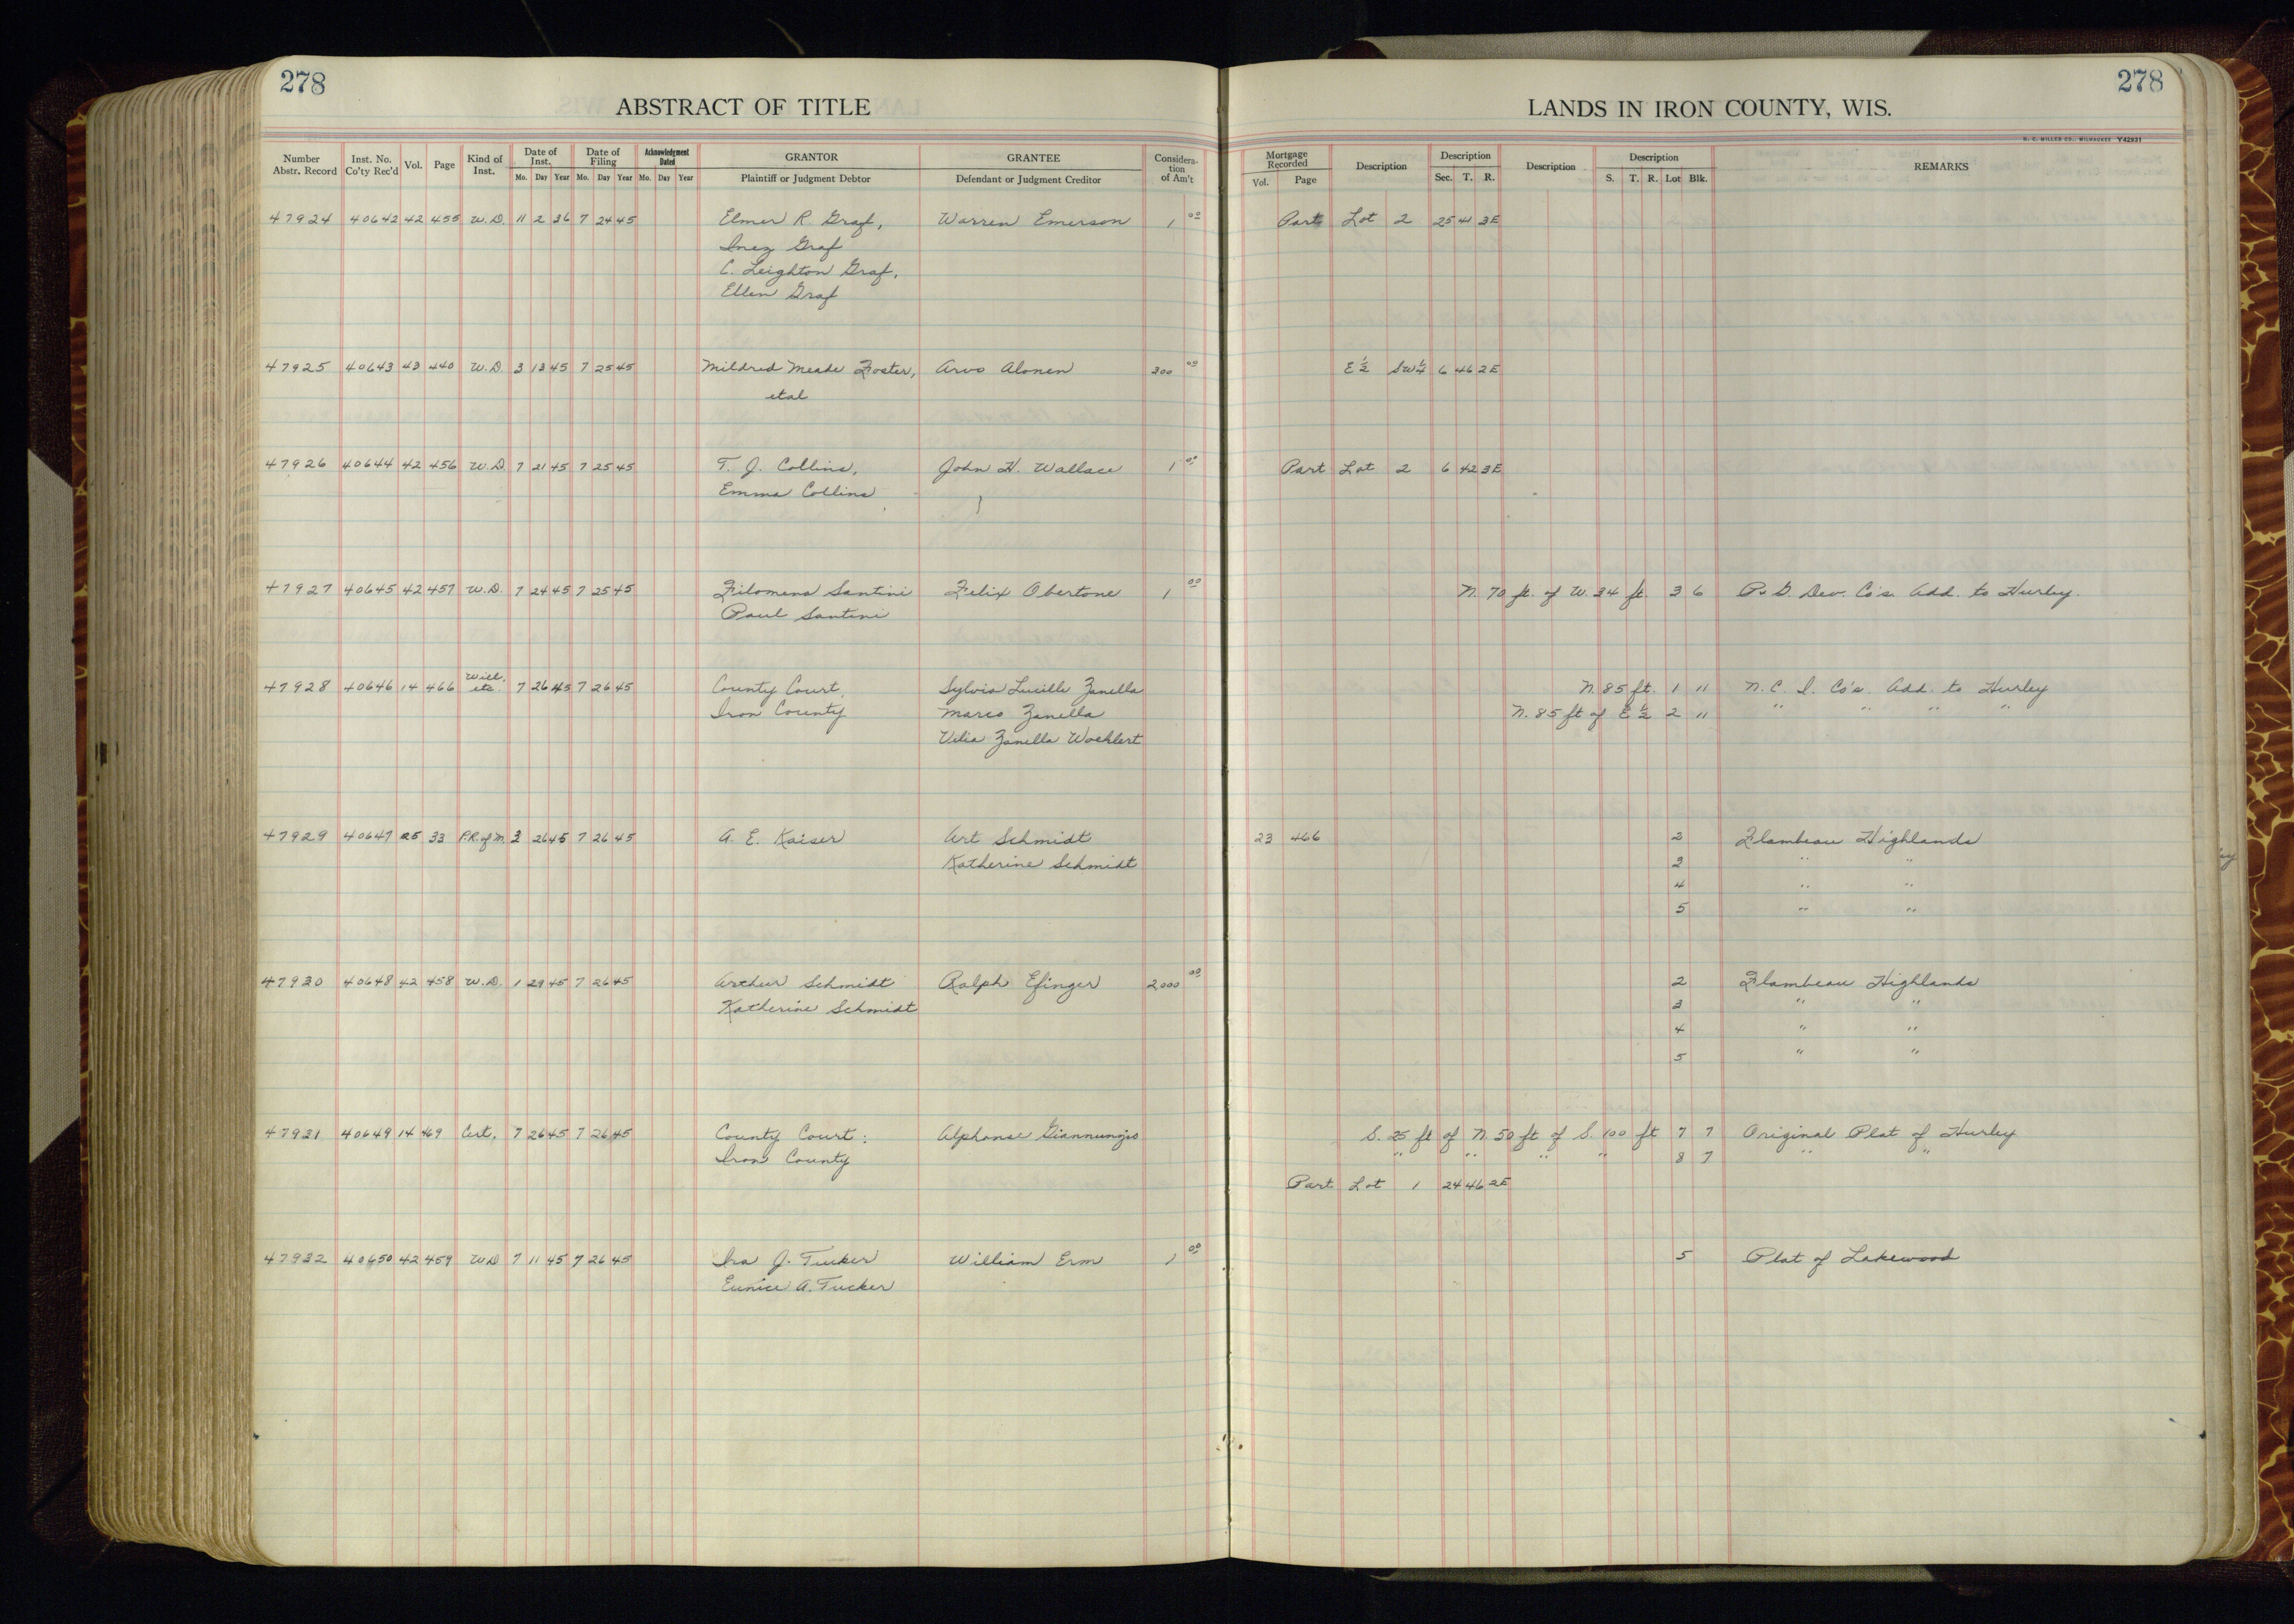 278
278
ABSTRACT OF TITLE
LANDS IN IRON COUNTY, WIS.
H. C. MILLER CO., MILWAUKEE Y42931
Number Abstr. Record Inst. No. Co'ty Rec'd Vol. Page Kind of Inst. Date of Inst. Mo. Day Year Date of Filing Mo. Day Year Acknowledgment Dated Mo. Day Year GRANTOR Plaintiff or Judgment Debtor GRANTEE Defendant or Judgment Creditor Considera-tion of Am't Mortgage Recorded Vol. Page Description Description Sec. T. R. Description Description S. T. R. Lot Blk. REMARKS
47924 40642 42 455 W.D. 11 2 36 7 24 45 Elmer R. Graf, Warren Emerson 1 00 Part Lot 2 25 41 3E
Inez Graf
C. Leighton Graf,
Ellen Graf
47925 40643 43 440 W.D. 3 13 45 7 25 45 Mildred Meade Foster, Arvo Alonen 300 00 E 1/2 SW 1/4 6 46 2E
etal
47926 40644 42 456 W.D. 7 21 45 7 25 45 T. J. Collins, John H. Wallace 1 00 Part Lot 2 6 42 3E
Emma Collins
47927 40645 42 457 W.D. 7 24 45 7 25 45 Filomena Santini Felix Obertone 1 00 N. 70 ft. of W. 34 ft. 3 6 P. & G. Dev. Co's. Add. to Hurley.
Paul Santini
47928 40646 14 466 Will, etc 7 26 45 7 26 45 County Court, Sylvia Lucille Zanella N. 85 ft. 1 11 N. C. I. Co's. Add. to Hurley
Iron County Marco Zanella N. 85 ft of E 1/2 2 11 " " " "
Velia Zanella Woehlert
47929 40647 25 33 P.R. of M. 3 26 45 7 26 45 A. E. Kaiser Art Schmidt 23 466 2 Flambeau Highlands
Katherine Schmidt 3 " "
4 " "
5 " "
47930 40648 42 458 W.D. 1 29 45 7 26 45 Arthur Schmidt Ralph Efinger 2,000 00 2 Flambeau Highlands
Katherine Schmidt 3 " "
4 " "
5 " "
47931 40649 14 469 Cert. 7 26 45 7 26 45 County Court: Alphonse Giannunzio S. 25 ft of N. 50 ft of S. 100 ft 7 7 Original Plat of Hurley
Iron County " " " " 8 7 " "
Part Lot 1 24 46 2E
47932 40650 42 459 W.D 7 11 45 7 26 45 Ira J. Tucker William Erm 1 00 5 Plat of Lakewood
Eunice A. Tucker